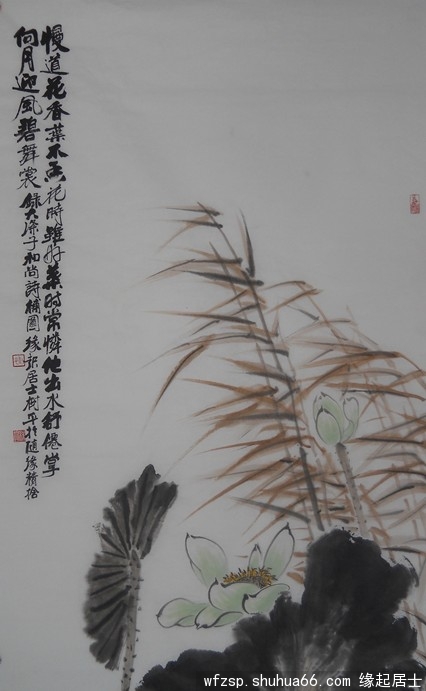 慢道花香葉不香花時雖好葉时常憐他出水舒僊掌
向月迎風碧舞裳 錄大滌子和尚詩補圖 緣起居士树平於隨緣精舍
wfzsp.shuhua66.com 缘起居士